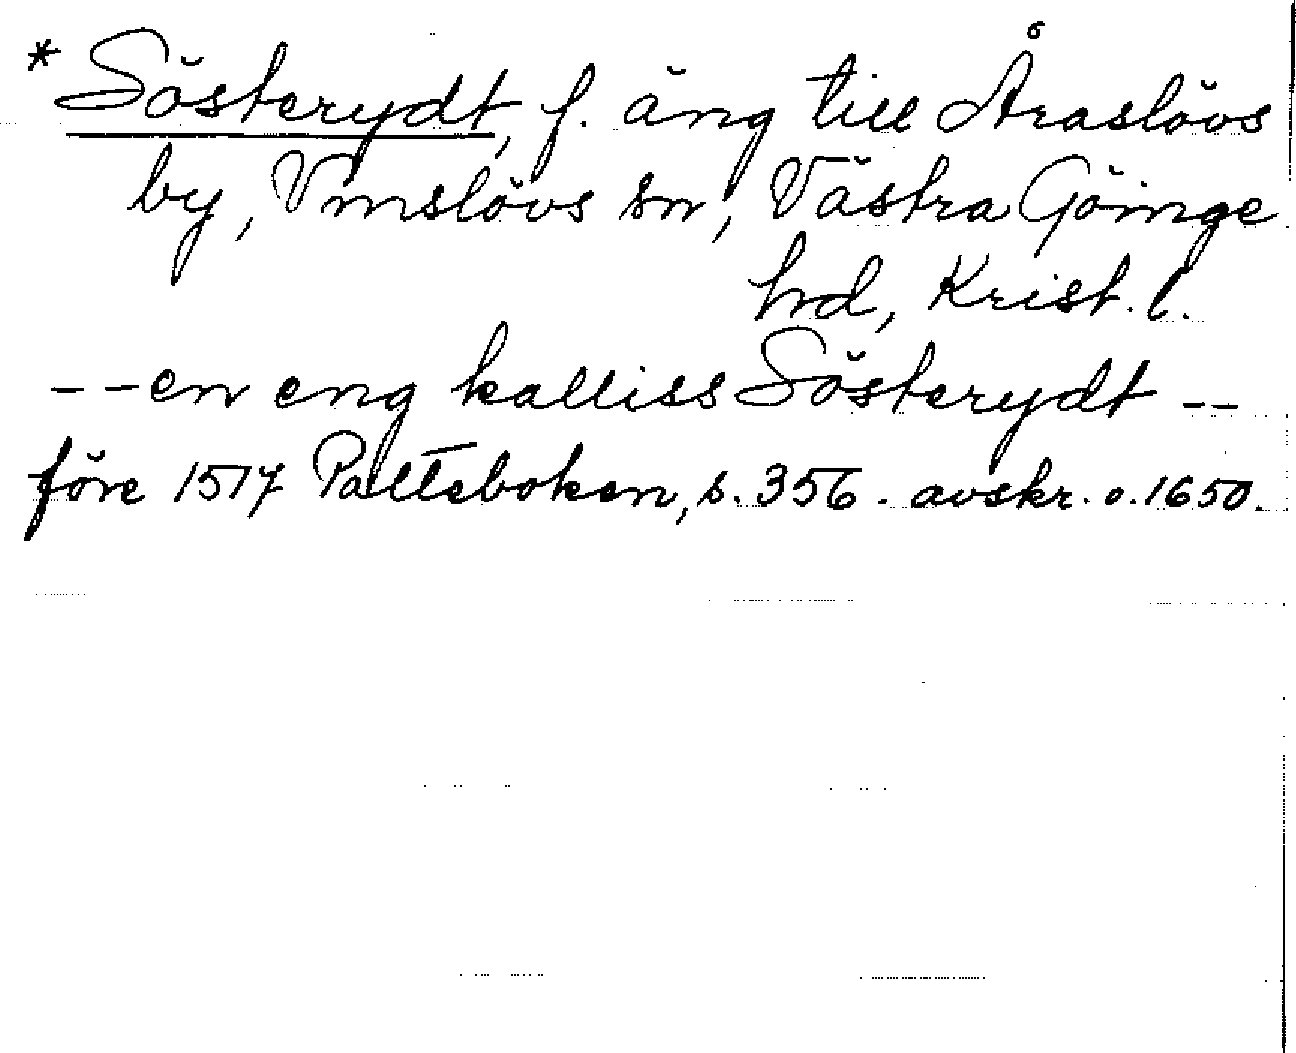 * Sösterydt, f. äng till Åraslövs
by, Vmslövs sn, Västra Göinge
hd, Krist. l.
-- en eng kalliss Sösterydt --
före 1517 Palteboken, s. 356. avskr. o. 1650.